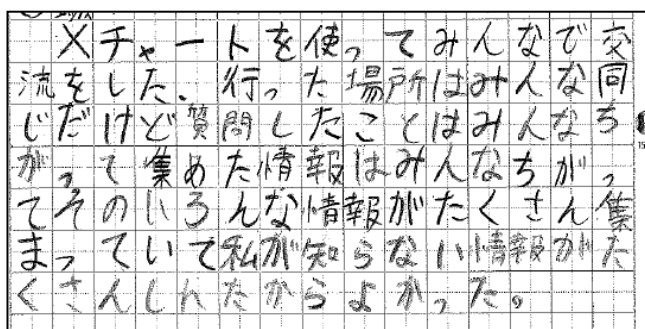 Xチャートを使ってみんなで交
流をした、行った場所はみんな同
じだけど質問したことはみんなち
がって集めた情報はみんなちがっ
てそのいろんな情報がたくさん集
まっていて私が知らない情報がた
くさんしれたからよかった。